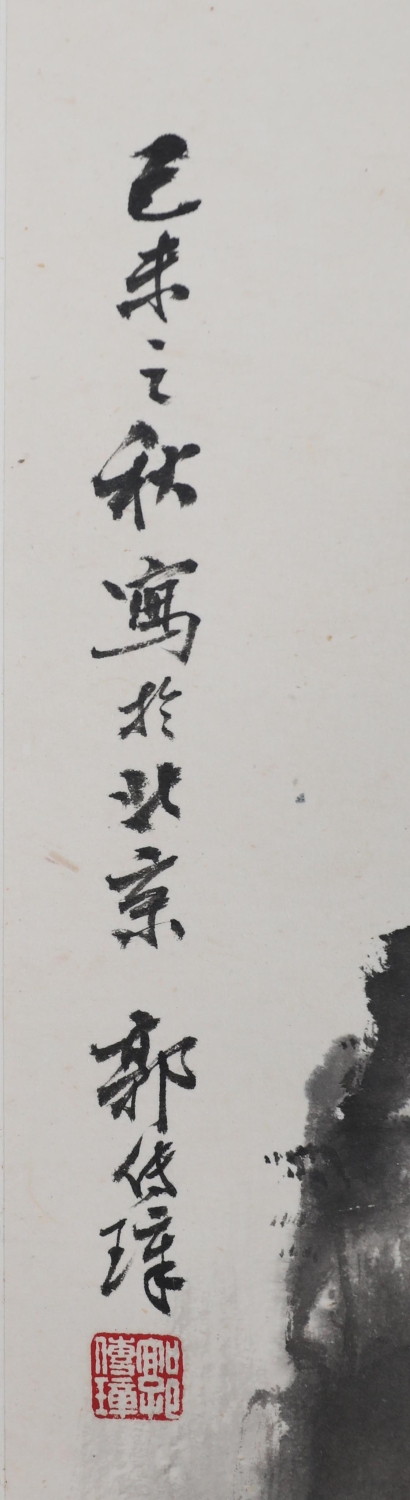 己未之秋寫於北京 郭传璋
郭傳璋